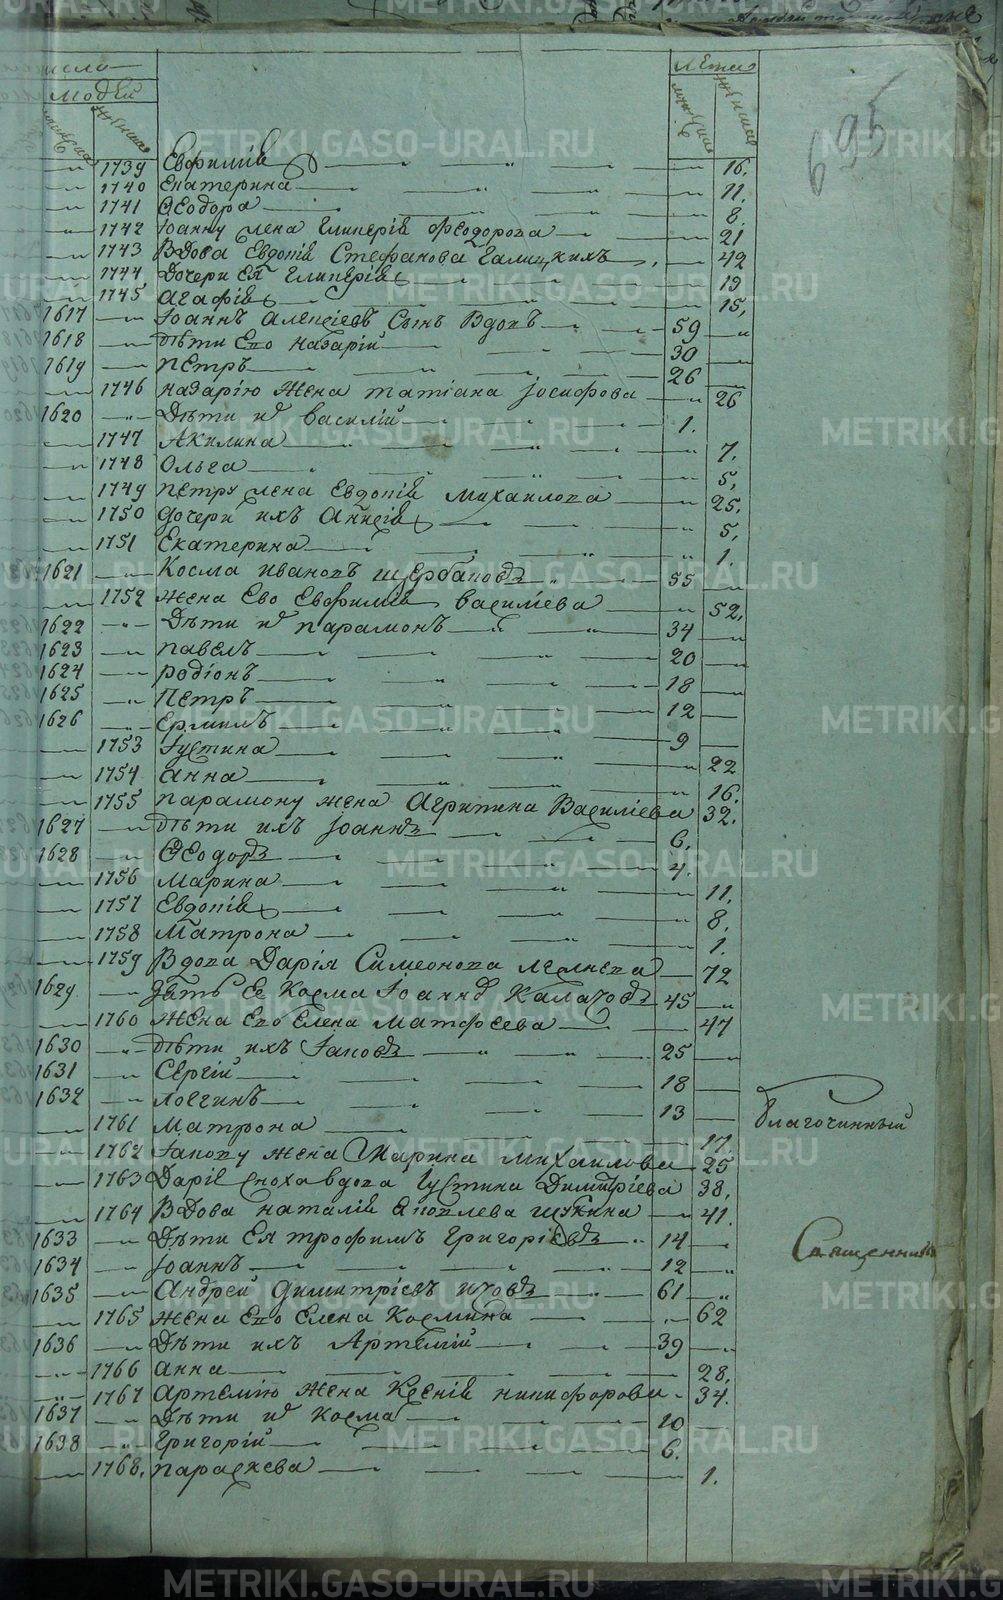 число
людей
Лета
мужеска
женска
мужеска
женска
695
1739 Евфимія 16.
1740 Екатерина 11.
1741 Ѳеодора 8.
1742 Іоанну жена Гликерія Феодорова 21
1743 Вдова Евдокія Стефанова Галицкихъ 42
1744 Дочери Ея Гликерія 19
1745 Агафія 15.
1617 Іоаннъ Алексіевъ Сынъ Вдовъ 59
1618 дѣти Его Назарій 30
1619 Петръ 26
1746 Назарію Жена татіана Іосифова 26
1620 Дѣти их Василій 1.
1747 Акилина 7.
1748 Ольга 5.
1749 Петру жена Евдокія Михаилова 25.
1750 дочери ихъ Аннсія 5.
1751 Екатерина 1.
1621 Косма Ивановъ Щербаковъ 55
1752 Жена Ево Евфимія Василіева 52.
1622 Дѣти их Парамонъ 34
1623 Павелъ 20
1624 Родіонъ 18
1625 Петръ 12
1626 Ермилъ 9
1753 Іустина 22
1754 Анна 16.
1755 Парамону жена Агрипина Василіева 32.
1627 дѣти ихъ Іоаннъ 6.
1628 Ѳеодоръ 4.
1756 Марина 11.
1757 Евдокія 8.
1758 Матрона 1.
1759 Вдова Дарія Симеонова 72
1629 дѣть Ее Косма Іоаннов Калачовъ 45
1760 Жена Его Елена Матфеева 47
1630 дѣти ихъ Іаковъ 25
1631 Сергій 18
1632 Логгинъ 13
1761 Матрона 17.
1762 Іакову жена Марина Михаилова 25
1763 Даріе сноха вдова Іустина Димитріева 38.
1764 Вдова Наталія Яковлева Щукина 41.
1633 Дѣти Ея трофимъ Григоріевъ 14
1634 Іоаннъ 12
1635 Андрей Димитріевъ 61
1765 Жена Его Елена Космина 62
1636 Дѣти ихъ Артемій 39
1766 Анна 28.
1767 Артемію Жена Ксенія Никифорова 34.
1637 Дѣти их Косма 10
1638 Григорій 6.
1768. Параскева 1.
Благочинный
Священникъ
METRIKI.GASO-URAL.RU